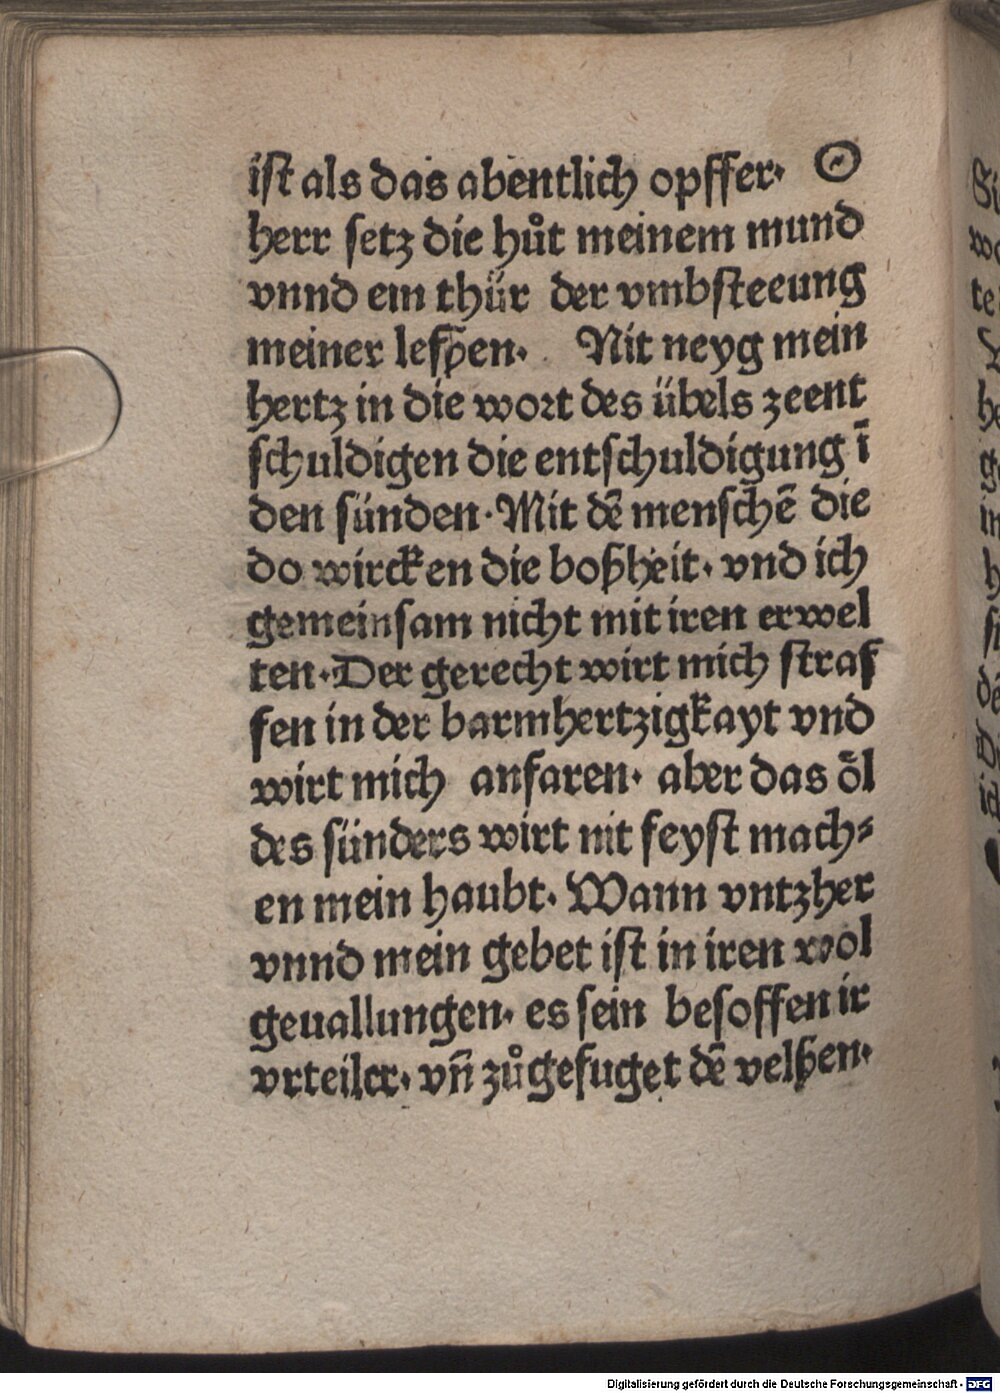 ist als das abentlich opffer· O
herr setz die hůt meinem mund
vnnd ein thür der vmbsteeung
meiner lefpen· Nit neyg mein
hertz in die wort des übels zeent
schuldigen die entschuldigung ī
den sünden· Mit dē menschē die
do wircken die boßheit· vnd ich
gemeinsam nicht mit iren erwel
ten· Der gerecht wirt mich straf
fen in der barmhertzigkayt vnd
wirt mich anfaren· aber das öl
des sünders wirt nit feyst mach⸗
en mein haubt· Wann vntzher
vnnd mein gebet ist in iren wol
geuallungen· es sein besoffen ir
vrteiler· vn̄ zůgefuget dē velßen·
Digitalisierung gefördert durch die Deutsche Forschungsgemeinschaft - DFG